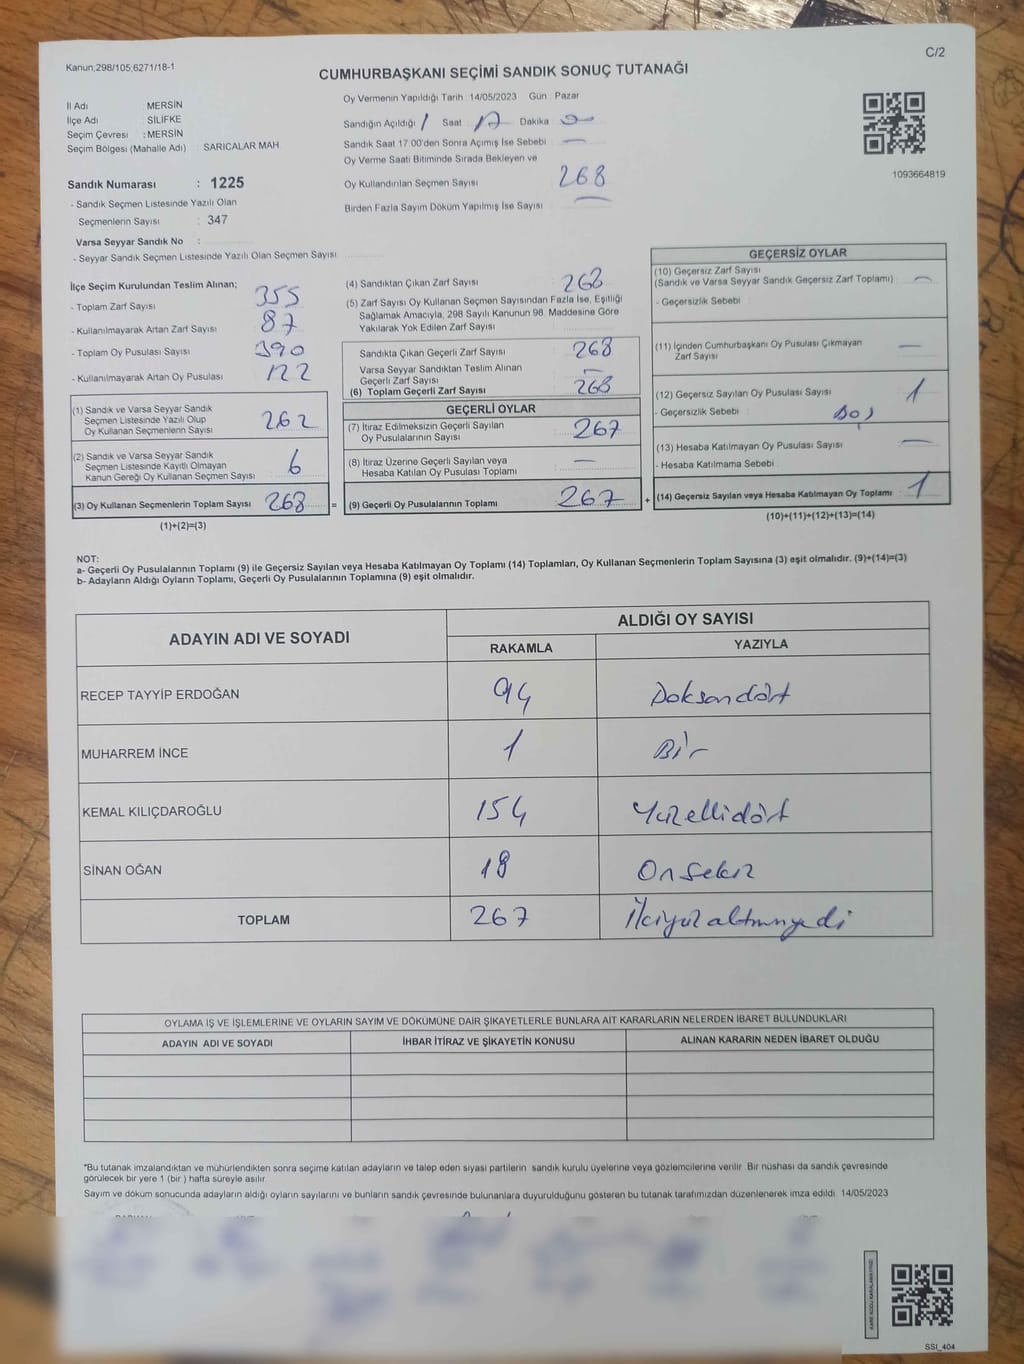 Kanun,298/105,6271/18-1
C/2
CUMHURBAŞKANI SEÇİMİ SANDIK SONUÇ TUTANAĞI
İl Adı : MERSİN
İlçe Adı : SİLİFKE
Seçim Çevresi : MERSİN
Seçim Bölgesi (Mahalle Adı) : SARICALAR MAH.
Sandık Numarası : 1225
- Sandık Seçmen Listesinde Yazılı Olan
Seçmenlerin Sayısı : 347
Varsa Seyyar Sandık No :
- Seyyar Sandık Seçmen Listesinde Yazılı Olan Seçmen Sayısı:
Oy Vermenin Yapıldığı Tarih : 14/05/2023 Gün : Pazar
Sandığın Açıldığı / Saat : 17 Dakika
Sandık Saat 17.00'den Sonra Açımış İse Sebebi : —
Oy Verme Saati Bitiminde Sırada Bekleyen ve
Oy Kullandırılan Seçmen Sayısı : 268
Birden Fazla Sayım Döküm Yapılmış İse Sayısı : —
1093664819
İlçe Seçim Kurulundan Teslim Alınan;
- Toplam Zarf Sayısı : 355
- Kullanılmayarak Artan Zarf Sayısı : 87
- Toplam Oy Pusulası Sayısı : 390
- Kullanılmayarak Artan Oy Pusulası : 122
(1) Sandık ve Varsa Seyyar Sandık
Seçmen Listesinde Yazılı Olup
Oy Kullanan Seçmenlerin Sayısı : 262
(2) Sandık ve Varsa Seyyar Sandık
Seçmen Listesinde Kayıtlı Olmayan
Kanun Gereği Oy Kullanan Seçmen Sayısı : 6
(3) Oy Kullanan Seçmenlerin Toplam Sayısı : 268
(1)+(2)=(3)
(4) Sandıktan Çıkan Zarf Sayısı : 268
(5) Zarf Sayısı Oy Kullanan Seçmen Sayısından Fazla İse, Eşitliği
Sağlamak Amacıyla, 298 Sayılı Kanunun 98. Maddesine Göre
Yakılarak Yok Edilen Zarf Sayısı :
Sandıkta Çıkan Geçerli Zarf Sayısı : 268
Varsa Seyyar Sandıktan Teslim Alınan
Geçerli Zarf Sayısı : —
(6) Toplam Geçerli Zarf Sayısı : 268
GEÇERLİ OYLAR
(7) İtiraz Edilmeksizin Geçerli Sayılan
Oy Pusulalarının Sayısı : 267
(8) İtiraz Üzerine Geçerli Sayılan veya
Hesaba Katılan Oy Pusulası Toplamı : —
= (9) Geçerli Oy Pusulalarının Toplamı : 267 +
GEÇERSİZ OYLAR
(10) Geçersiz Zarf Sayısı
(Sandık ve Varsa Seyyar Sandık Geçersiz Zarf Toplamı) : —
- Geçersizlik Sebebi :
(11) İçinden Cumhurbaşkanı Oy Pusulası Çıkmayan
Zarf Sayısı : —
(12) Geçersiz Sayılan Oy Pusulası Sayısı : 1
- Geçersizlik Sebebi : Boş
(13) Hesaba Katılmayan Oy Pusulası Sayısı : —
- Hesaba Katılmama Sebebi :
(14) Geçersiz Sayılan veya Hesaba Katılmayan Oy Toplamı : 1
(10)+(11)+(12)+(13)=(14)
NOT:
a- Geçerli Oy Pusulalarının Toplamı (9) ile Geçersiz Sayılan veya Hesaba Katılmayan Oy Toplamı (14) Toplamları, Oy Kullanan Seçmenlerin Toplam Sayısına (3) eşit olmalıdır. (9)+(14)=(3)
b- Adayların Aldığı Oyların Toplamı, Geçerli Oy Pusulalarının Toplamına (9) eşit olmalıdır.
ADAYIN ADI VE SOYADI ALDIĞI OY SAYISI
RAKAMLA YAZIYLA
RECEP TAYYİP ERDOĞAN 94 Doksandört
MUHARREM İNCE 1 Bir
KEMAL KILIÇDAROĞLU 154 Yüzellidört
SİNAN OĞAN 18 Onsekiz
TOPLAM 267 İkiyüzaltmışyedi
OYLAMA İŞ VE İŞLEMLERİNE VE OYLARIN SAYIM VE DÖKÜMÜNE DAİR ŞİKAYETLERLE BUNLARA AİT KARARLARIN NELERDEN İBARET BULUNDUKLARI
ADAYIN ADI VE SOYADI İHBAR İTİRAZ VE ŞİKAYETİN KONUSU ALINAN KARARIN NEDEN İBARET OLDUĞU
*Bu tutanak imzalandıktan ve mühürlendikten sonra seçime katılan adayların ve talep eden siyasi partilerin sandık kurulu üyelerine veya gözlemcilerine verilir. Bir nüshası da sandık çevresinde
görülecek bir yere 1 (bir) hafta süreyle asılır.
Sayım ve döküm sonucunda adayların aldığı oyların sayılarını ve bunların sandık çevresinde bulunanlara duyurulduğunu gösteren bu tutanak tarafımızdan düzenlenerek imza edildi. 14/05/2023
SSI_404